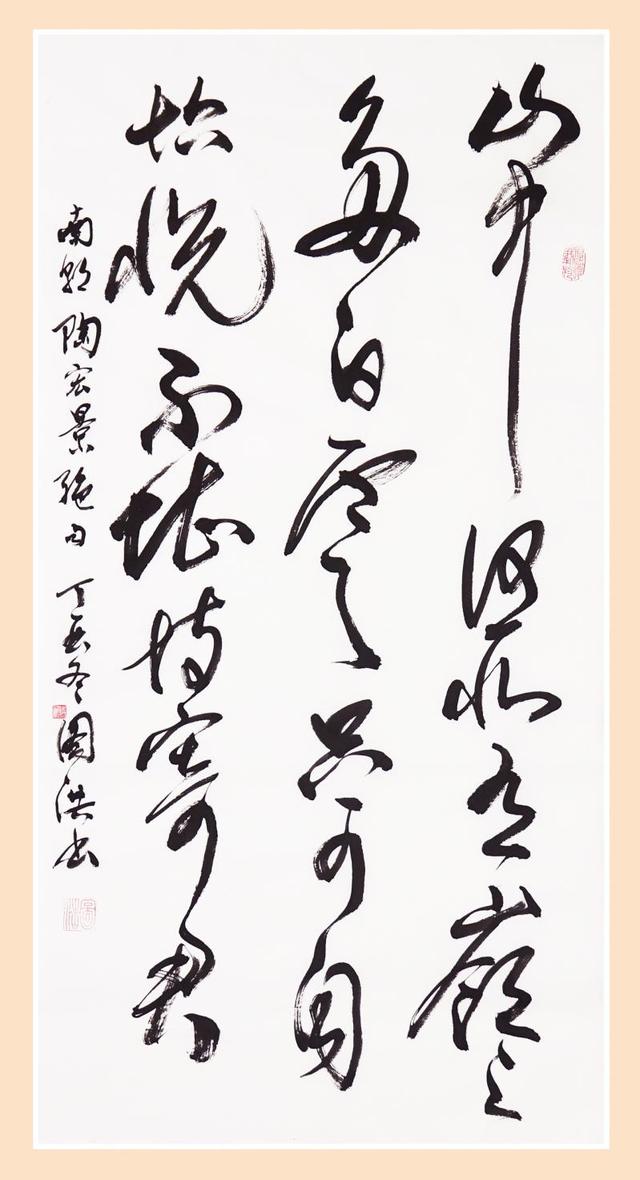 山中何所有嶺上
多白雲只可自
怡悦不堪持寄君
南朝陶宏景絶句 丁亥冬周洪书